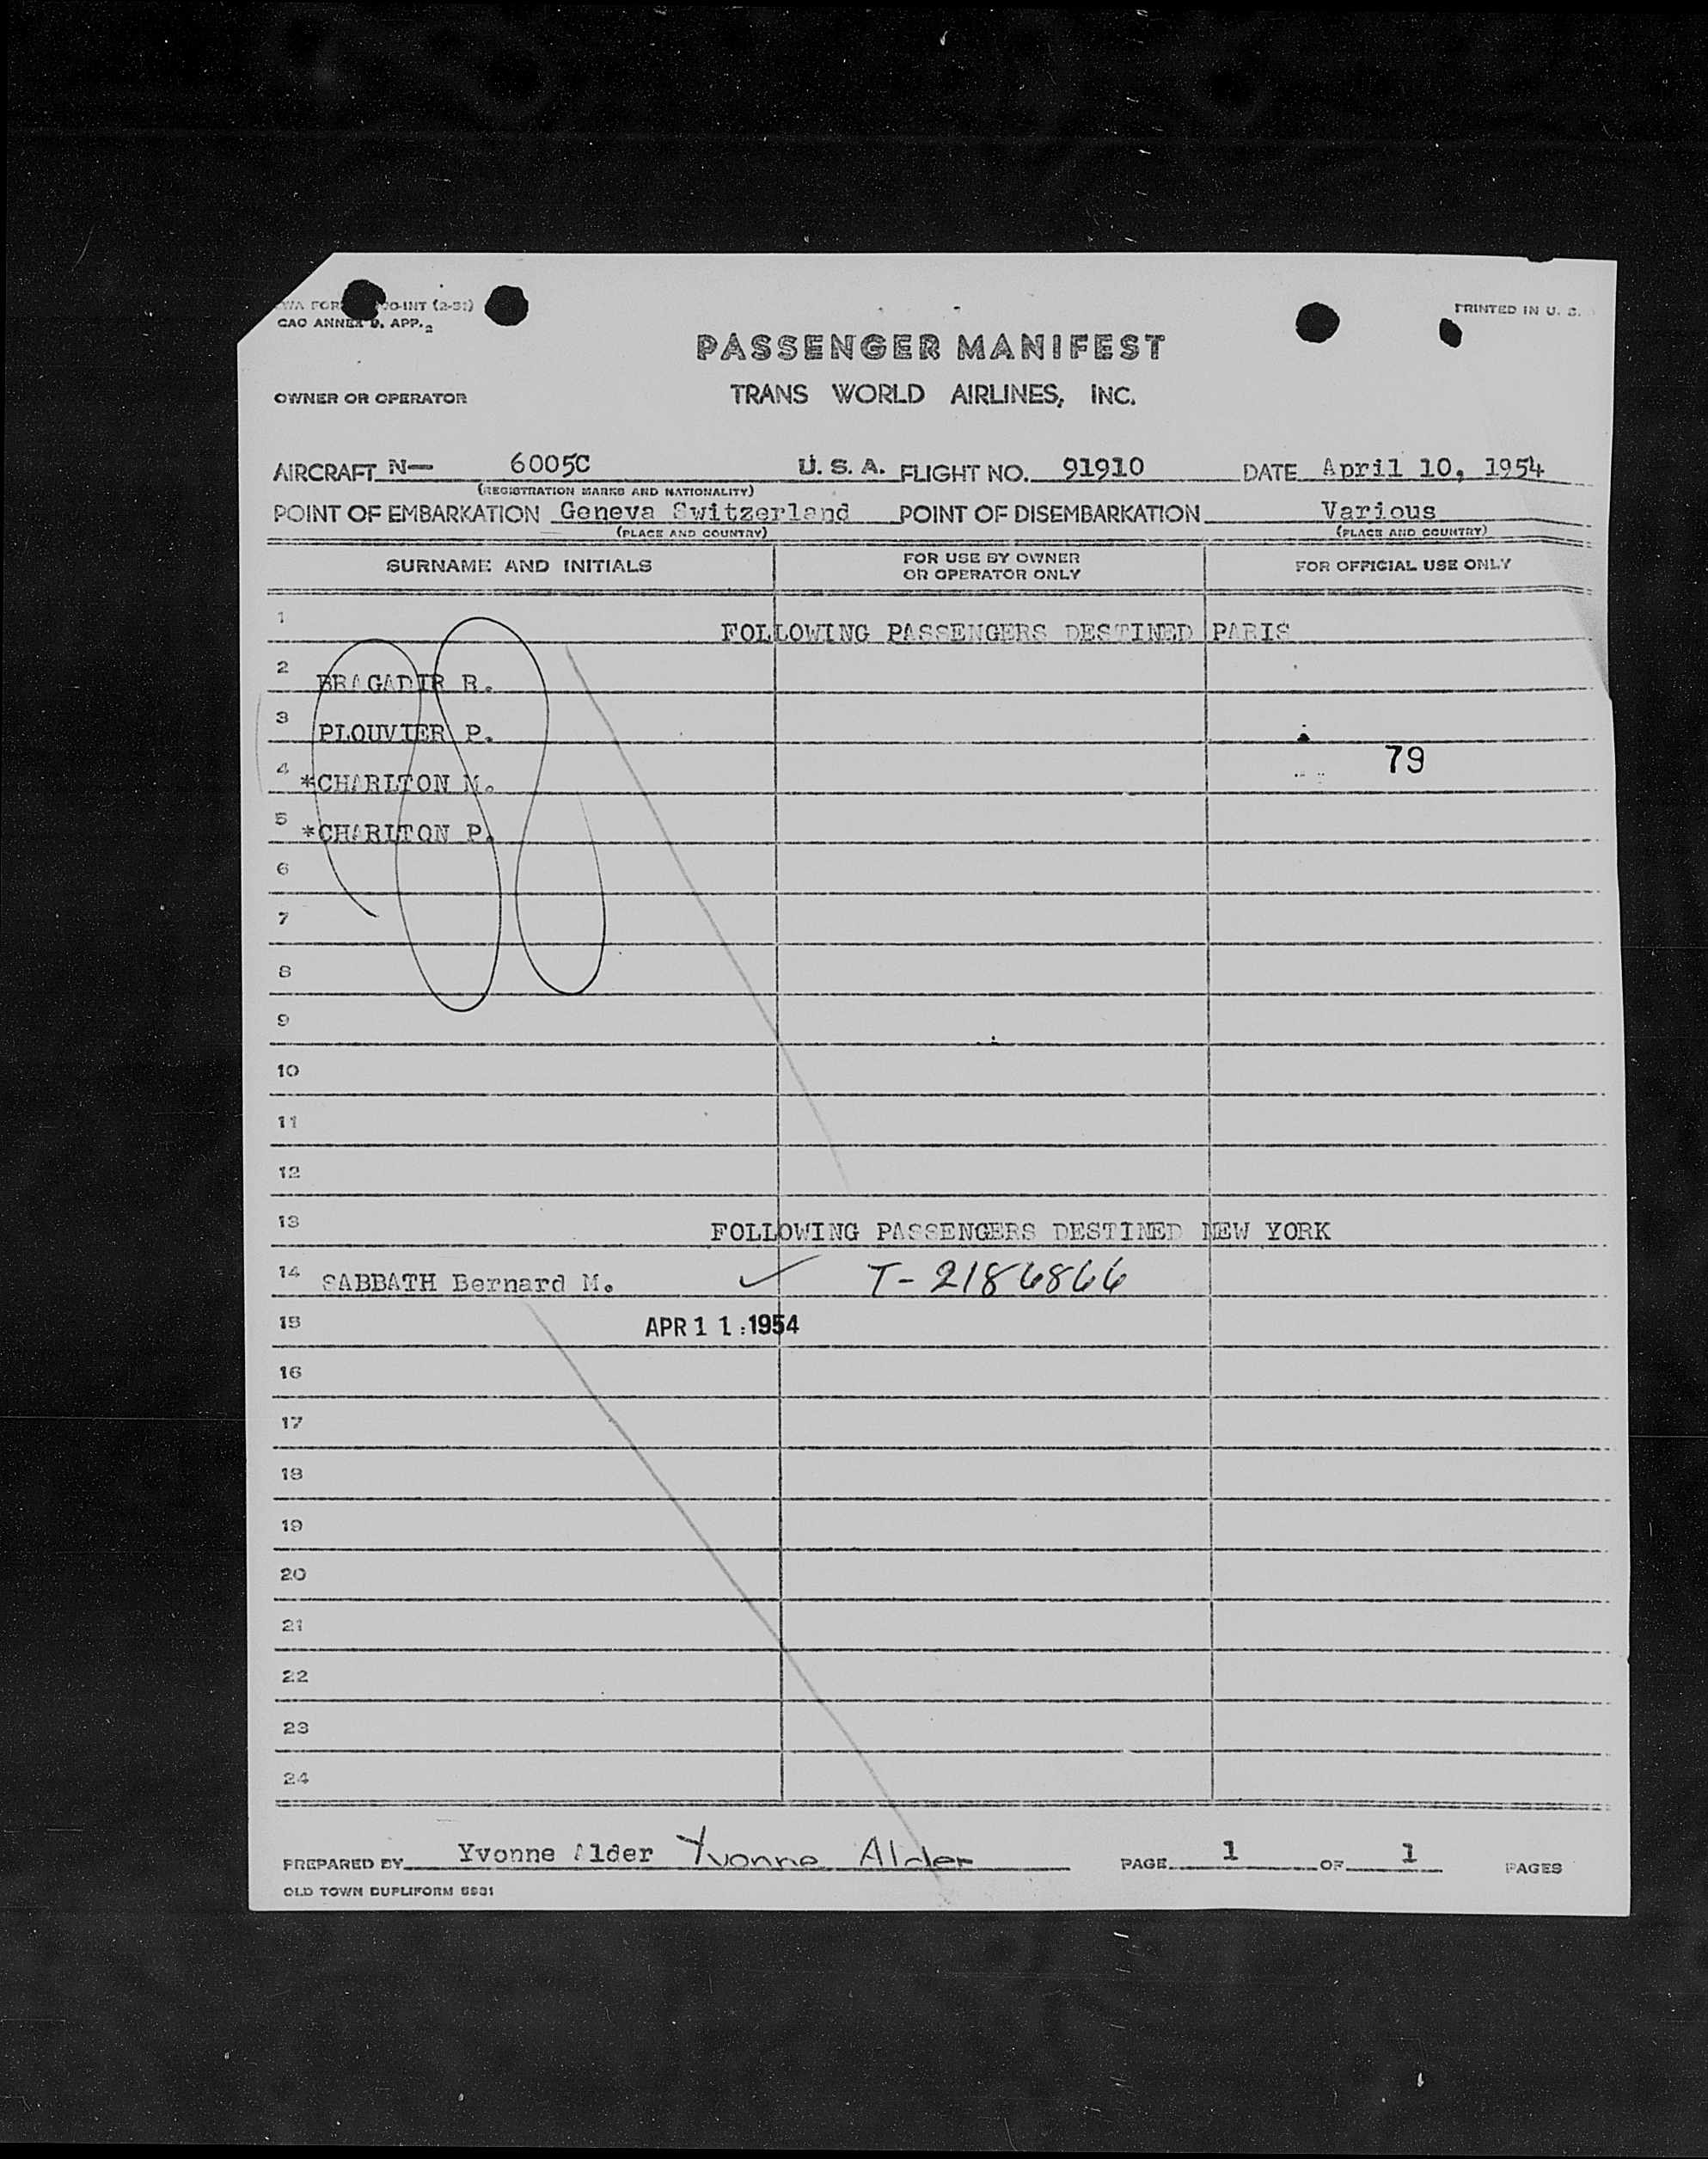 FOR O-INT (2-51)
CAO ANNEX 9, APP. 2
PRINTED IN U. S.
PASSENGER MANIFEST
OWNER OR OPERATOR TRANS WORLD AIRLINES, INC.
AIRCRAFT N— 6005C U. S. A. FLIGHT NO. 91910 DATE April 10, 1954
(REGISTRATION MARKS AND NATIONALITY)
POINT OF EMBARKATION Geneva Switzerland POINT OF DISEMBARKATION Various
(PLACE AND COUNTRY) (PLACE AND COUNTRY)
SURNAME AND INITIALS FOR USE BY OWNER OR OPERATOR ONLY FOR OFFICIAL USE ONLY
1 FOLLOWING PASSENGERS DESTINED PARIS
2 BRAGADIR R.
3 PLOUVIER P.
79
4 *CHARLTON M.
5 *CHARLTON P.
6
7
8
9
10
11
12
13 FOLLOWING PASSENGERS DESTINED NEW YORK
14 SABBATH Bernard M. ✓ T-2186866
15 APR 11 1954
16
17
18
19
20
21
22
23
24
PREPARED BY Yvonne Alder Yvonne Alder PAGE 1 OF 1 PAGES
OLD TOWN DUPLIFORM 5931